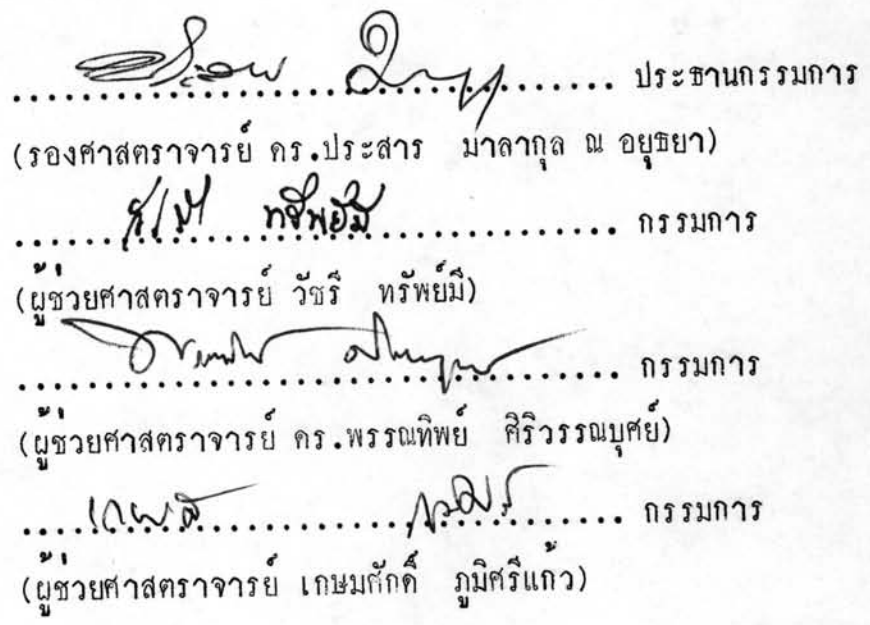 ........................................ ประธานกรรมการ
(รองศาสตราจารย์ ดร.ประสาร มาลากุล ณ อยุธยา)
ทรัพย์มี ........................................ กรรมการ
(ผู้ช่วยศาสตราจารย์ วัชรี ทรัพย์มี)
........................................ กรรมการ
(ผู้ช่วยศาสตราจารย์ ดร.พรรณทิพย์ ศิริวรรณบุศย์)
........................................ กรรมการ
(ผู้ช่วยศาสตราจารย์ เกษมศักดิ์ ภูมิศรีแก้ว)